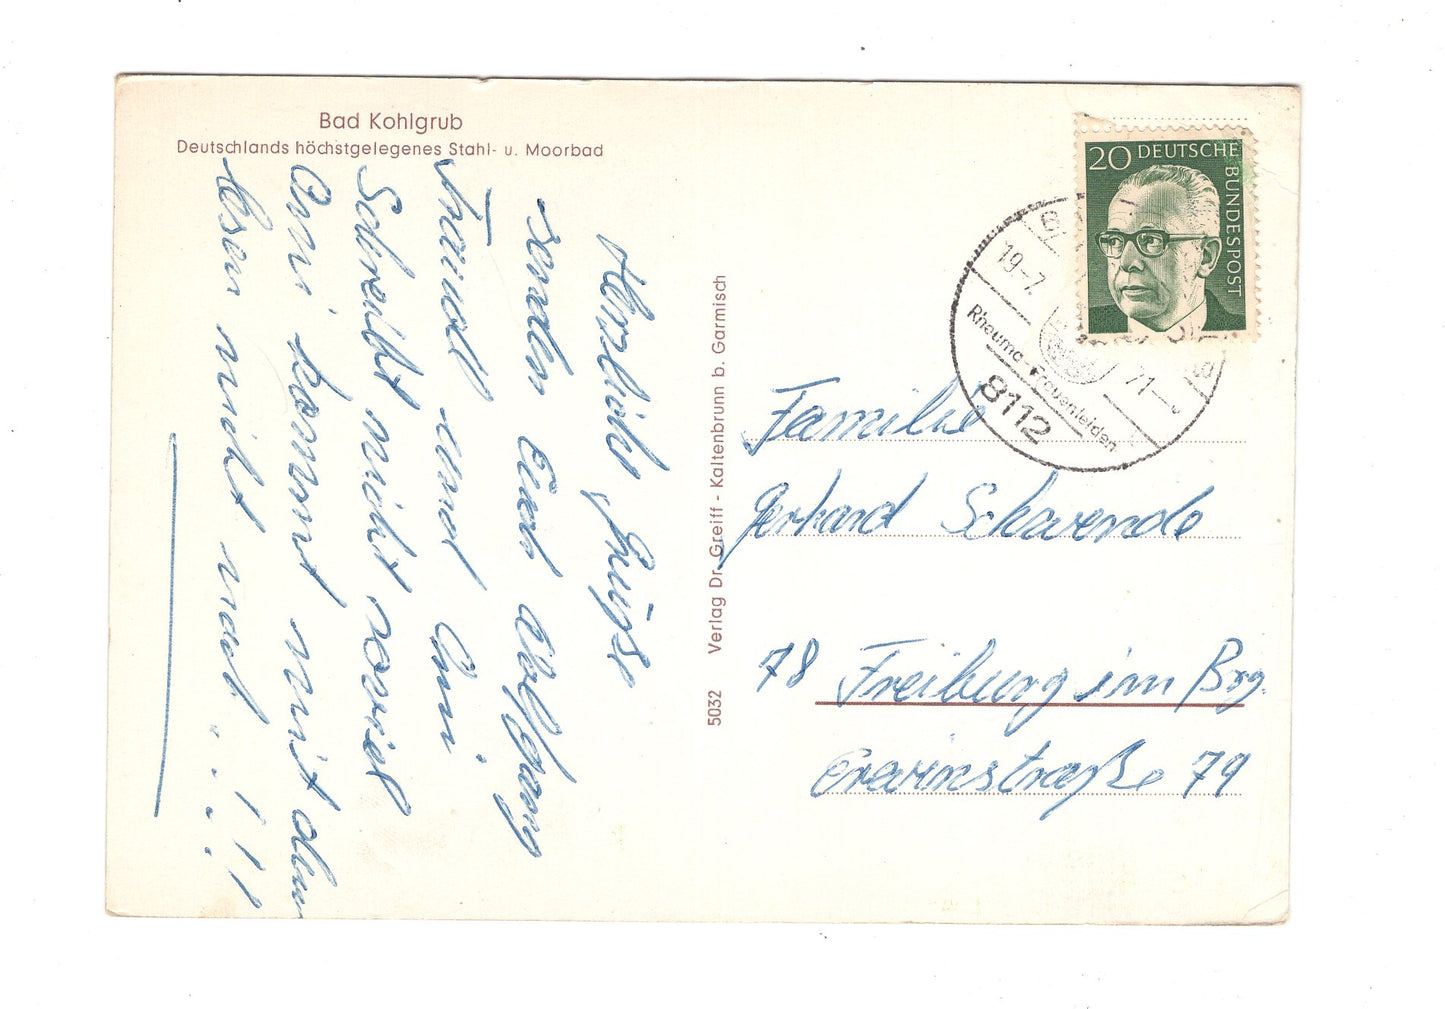 Bad Kohlgrub
Deutschlands höchstgelegenes Stahl- u. Moorbad
Herzliche Grüße
senden Euch Wolfgang
und Omi
Schreibt nicht soviel
Omi kommt mit dem
lesen nicht nach . . . !!!
5032 Verlag Dr. Greiff - Kaltenbrunn b. Garmisch
20 DEUTSCHE
BUNDESPOST
19-7. 71
Rheuma - Frauenleiden
8112
Familie
Gerhard Schwende
78 Freiburg im Brg.
Erwinstraße 79